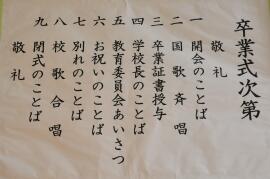 卒業式次第
敬礼
一 開会のことば
二 国歌斉唱
三 卒業証書授与
四 学校長のことば
五 教育委員会あいさつ
六 お祝いのことば
七 別れのことば
八 校歌合唱
九 閉式のことば
敬礼